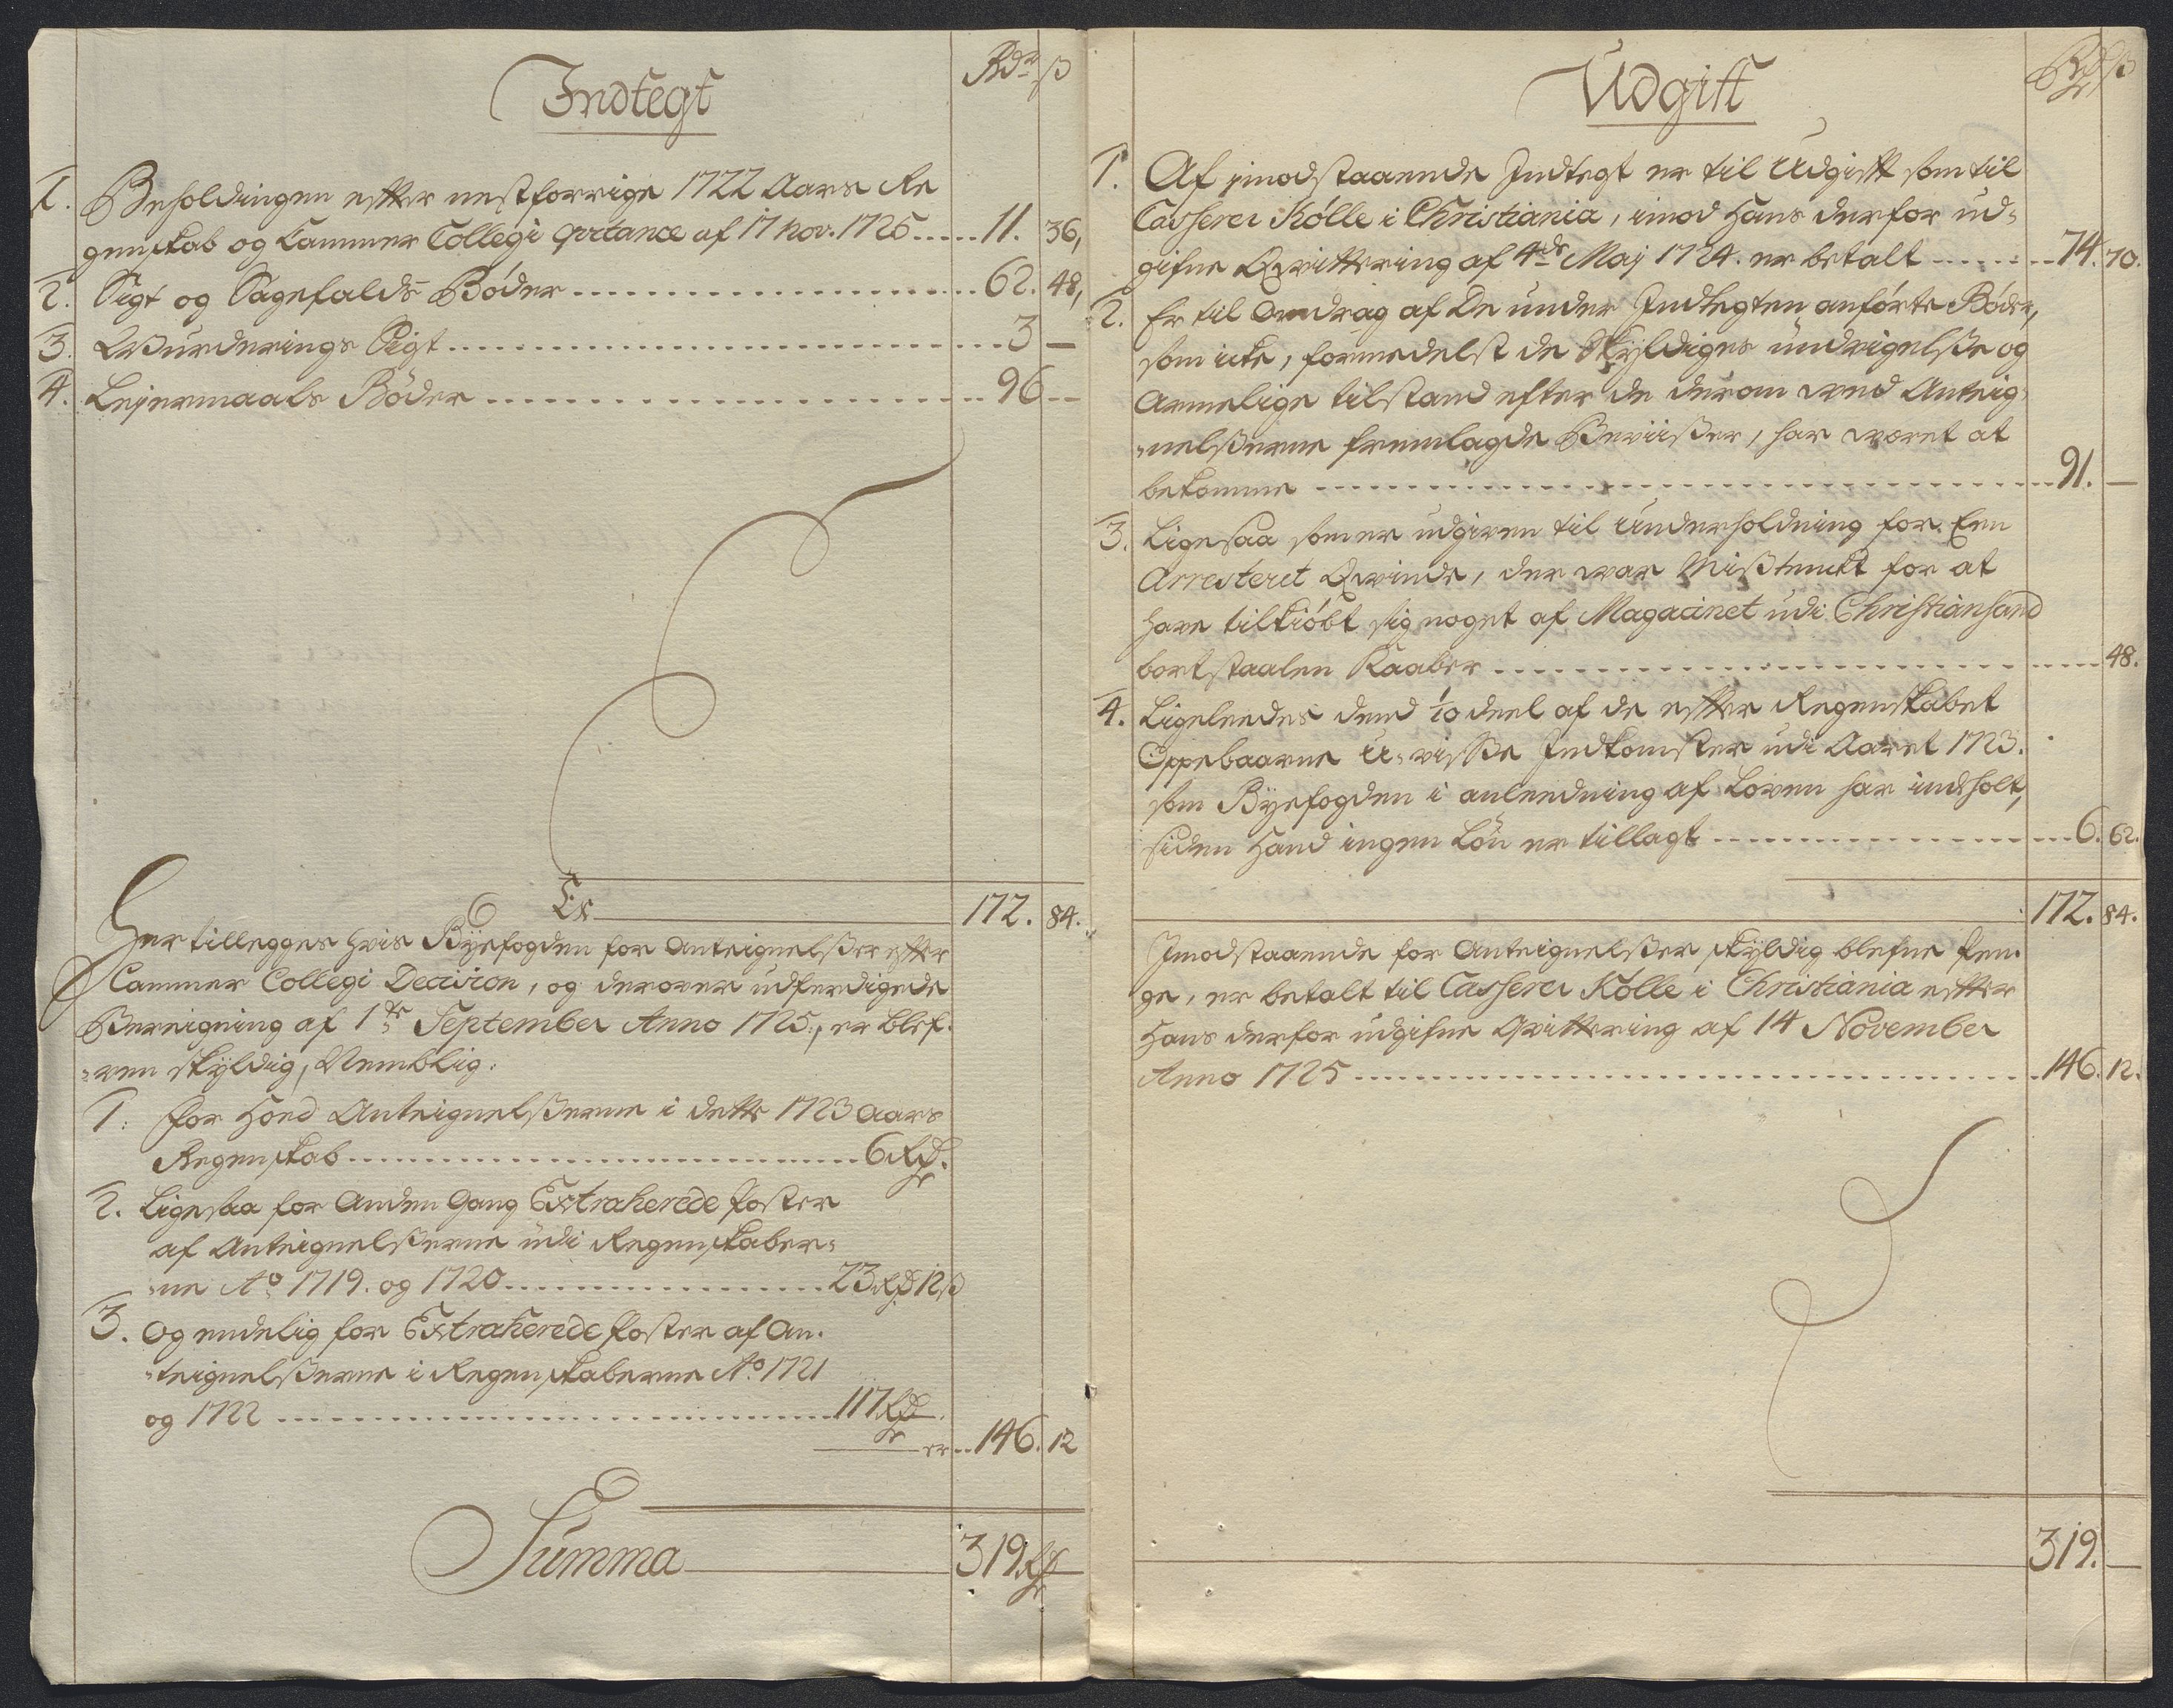 Indtegt
Rdr ß
1. Beholdingen effter nestforrige 1722 Aars Re
genskab og Cammer Collegi qvitance af 17 Nov. 1725 ..... 11. 36,
2. Sigt og Sagefalds Bøder ..... 62. 48,
3. Wurderings Sigt ..... 3 —
4. Lejermaals Bøder ..... 96 --
Er 172. 84.
Her tillegges hvis Byefogden for Anteignelßer effter
Cammer Collegi Decision, og derover udferdigede
Bereigning af 1te September Anno 1725, er blef-
ven skyldig, Nemblig:
1: for hoed Anteignelßerne i dette 1723 Aars
Regenskab ..... 6 Rdr.
2. Ligesaa for Anden Gang Extraherede poster
af Anteignelßerne udi Regenskaber-
ne Ao 1719. og 1720 ..... 23 Rdr 12 ß
3. Og endelig for Extraherede poster af An-
teignelßerne i Regenskaberne Ao 1721
og 1722 ..... 117 Rdr.
er .. 146. 12
Summa 319 Rdr —
Udgift
Rdr ß
1. Af imodstaaende Indtegt er til Udgifft som til
Casserer Kølle i Christiania, imod Hans derfor ud-
gifne Qvittering af 4de Maj 1724. er betalt ..... 74. 70.
2. Er til Andrag af De under Indtegten anførte Bøder,
som icke, formedelst de Skyldiges undvigelße og
Armelige tilstand efter de derom ved Anteig-
nelßerne fremlagde Beviißer, har været at
bekomme ..... 91. —
3. Ligesaa som er udgiven til Underholdning for Een
Arresteret Qvinde, der var Mißtenckt for at
have tilkiøbt sig noget af Magacinet udi Christiansand
bortstaalen Kaaber ..... 48.
4. Ligeleedes dend 1/10 deel af de effter Regenskabet
Oppebaarne U-visse Indkomster udi Aaret 1723.
som Byefogden i anleedning af Loven har indholt,
siden Hand ingen Løn er tillagt ..... 6. 62.
172. 84.
Imodstaaende for Anteignelßer skyldig blefne Pen-
ge, er betalt til Casserer Kølle i Christiania effter
Hans derfor udgifne Qvittering af 14 November
Anno 1725 ..... 146. 12.
319. —